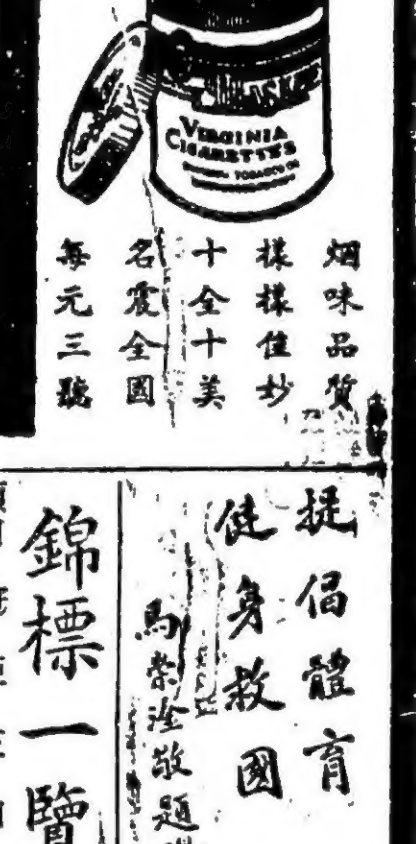 VIRGINIA
CIGARETTES
TOBACCO CO
烟味品質
樣樣佳妙
十全十美
名震全國
每元三號
提倡體育
健身救國
馬崇淦敬題
錦標一覽